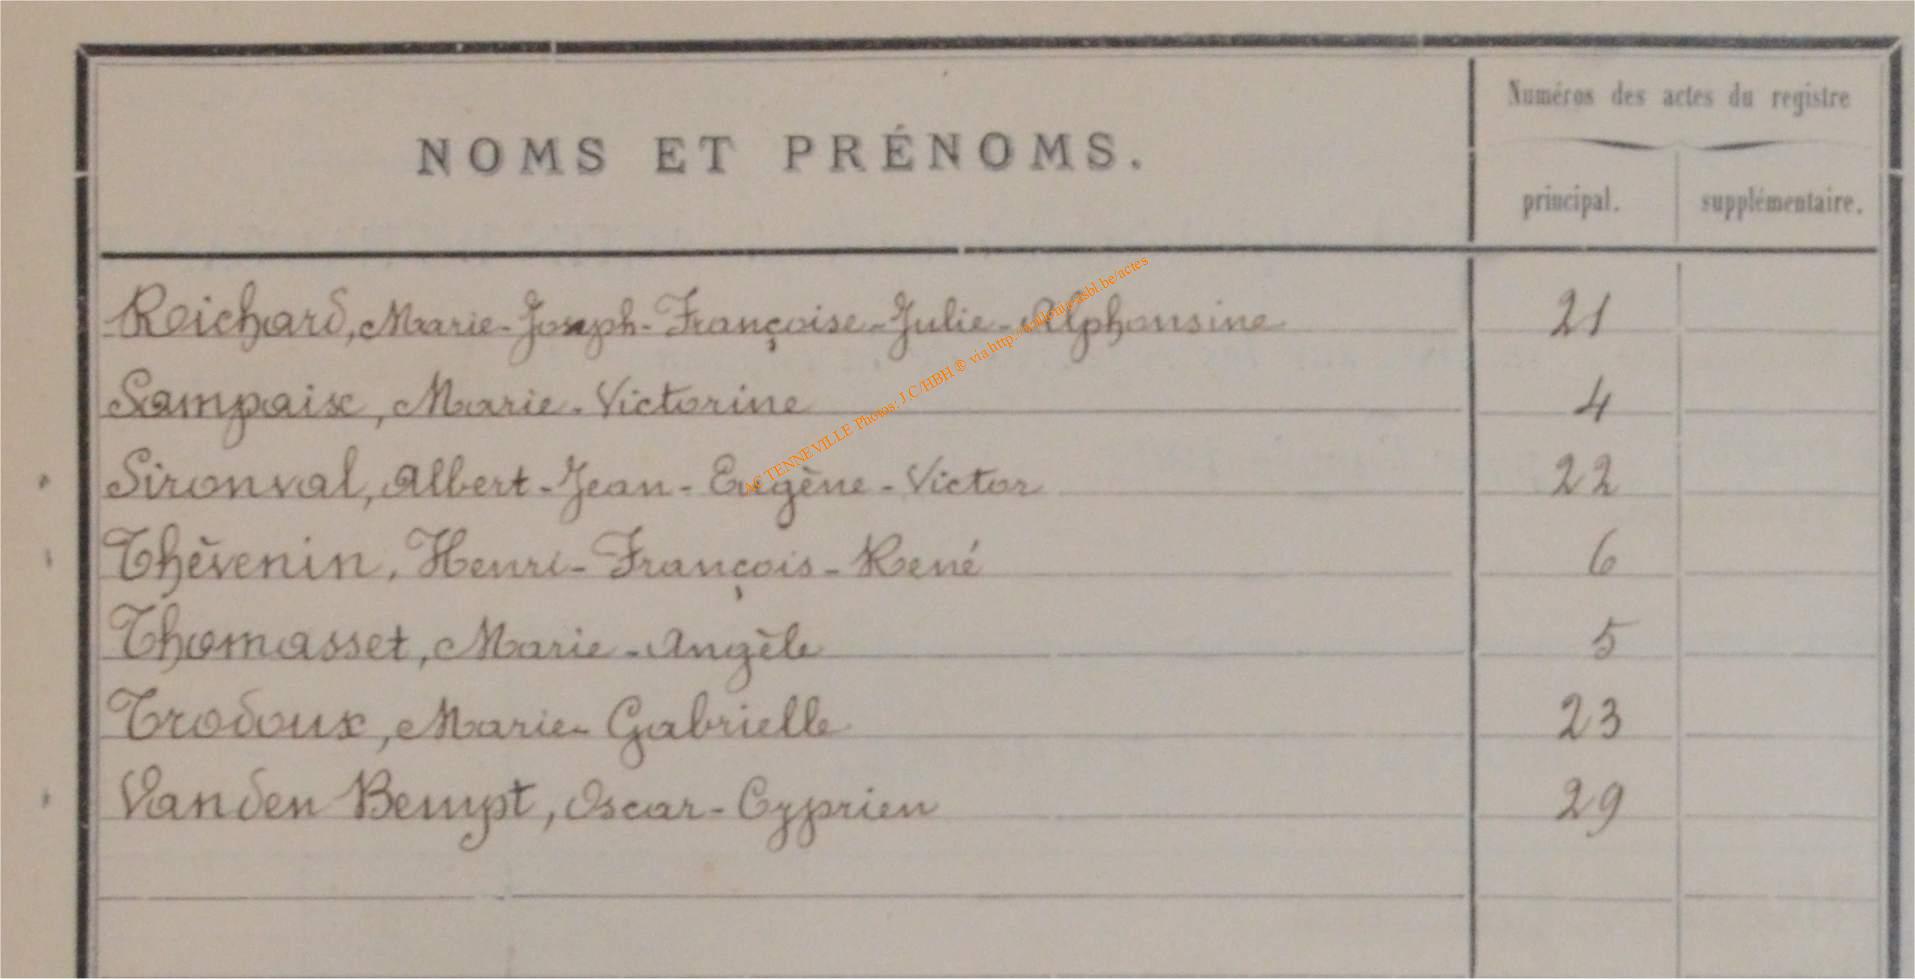 Numéros des actes du registre
NOMS ET PRÉNOMS.
principal. supplémentaire.
Reichard, Marie-Joseph-Françoise-Julie-Alphonsine 21
Sampaix, Marie-Victorine 4
Sironval, Albert-Jean-Eugène-Victor 22
Thèvenin, Henri-François-René 6
Thomasset, Marie-Angèle 5
Trodoux, Marie-Gabrielle 23
Vanden Bempt, Oscar-Cyprien 29
AC TENNEVILLE Photos: J C/HBH ® via http://wallonia-asbl.be/actes